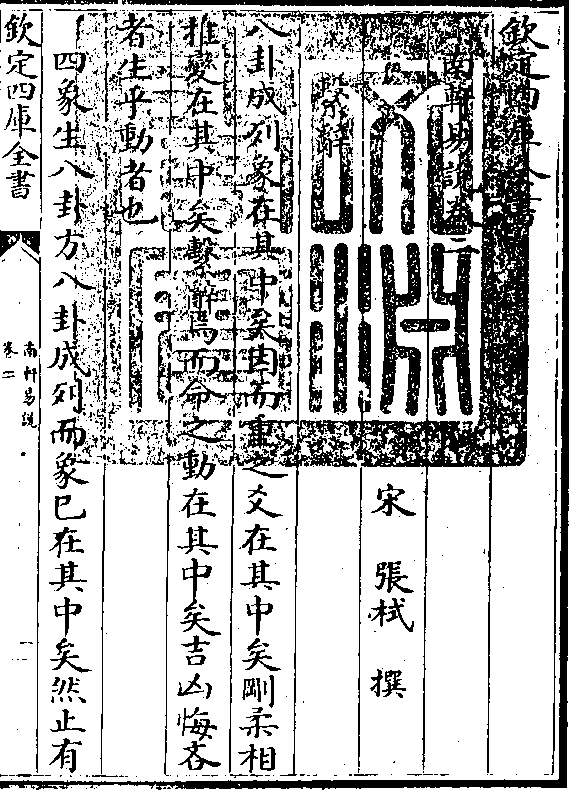 欽定四庫全書
南軒易說卷二
宋 張栻 撰
繫辭
八卦成列象在其中矣因而重之爻在其中矣剛柔相
推變在其中矣繫辭焉而命之動在其中矣吉凶悔吝
者生乎動者也
四象生八卦方八卦成列而象已在其中矣然止有
欽定四庫全書
南軒易說
卷二
一